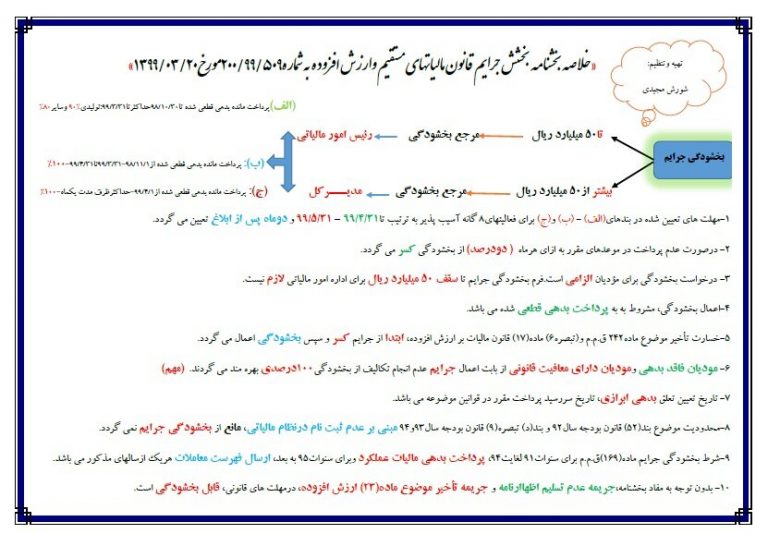 «خلاصه بخشنامه بخشش جرایم قانون مالیاتهای مستقیم وارزش افزوده به شماره ۲۰۰/۹۹/۵۰۹مورخ۱۳۹۹/۰۳/۲۰»
تهیه و تنظیم:
شورش مجیدی
(الف)پرداخت مانده بدهی قطعی شده تا۹۸/۱۰/۳۰حداکثرتا۹۹/۳/۳۱:تولیدی۹۰% و سایر ۸۰%
بخشودگی جرایم
تا۵۰ میلیارد ریال مرجع بخشودگی رئیس امور مالیاتی
(ب): پرداخت مانده بدهی قطعی شده از۹۸/۱۱/۱-۹۹/۳/۳۱تا۹۹/۴/۳۱-۱۰۰%
بیشتر از۵۰ میلیارد ریال مرجع بخشودگی مدیـــر کل
(ج): پرداخت مانده بدهی قطعی شده از۹۹/۴/۱-حداکثرظرف مدت یکماه-۱۰۰%
۱-مهلت های تعیین شده در بندهای(الف) - (ب) و(ج) برای فعالیتهای۸ گانه آسیب پذیر به ترتیب تا۹۹/۴/۳۱ - ۹۹/۵/۳۱ و دوماه پس از ابلاغ تعیین می گردد.
۲- درصورت عدم پرداخت در موعدهای مقرر به ازای هرماه (دودرصد) از بخشودگی کسر می گردد.
۳- درخواست بخشودگی برای مؤدیان الزامی است.فرم بخشودگی جرایم تا سقف ۵۰ میلیارد ریال برای اداره امور مالیاتی لازم نیست.
۴-اعمال بخشودگی، مشروط به به پرداخت بدهی قطعی شده می باشد.
۵-خسارت تأخیر موضوع ماده۲۴۲ ق.م.م و(تبصره۶) ماده(۱۷) قانون مالیات بر ارزش افزوده، ابتدا از جرایم کسر و سپس بخشودگی اعمال می گردد.
۶- مودیان فاقد بدهی ومودیان دارای معافیت قانونی از بابت اعمال جرایم عدم انجام تکالیف از بخشودگی۱۰۰درصدی بهره مند می گردند. (مهم)
۷- تاریخ تعیین تعلق بدهی ابرازی، تاریخ سررسید پرداخت مقرر در قوانین موضوعه می باشد.
۸-محدودیت موضوع بند(۵۲) قانون بودجه سال۹۲ و بند(د) تبصره(۹) قانون بودجه سال۹۳و۹۴ مبنی بر عدم ثبت نام درنظام مالیاتی، مانع از بخشودگی جرایم نمی گردد.
۹-شرط بخشودگی جرایم ماده(۱۶۹)ق.م.م برای سنوات۹۱ لغایت۹۴، پرداخت بدهی مالیات عملکرد وبرای سنوات۹۵ به بعد، ارسال فهرست معاملات هریک ازسالهای مذکور می باشد.
۱۰- بدون توجه به مفاد بخشنامه،جریمه عدم تسلیم اظهاارنامه و جریمه تأخیر موضوع ماده(۲۳) ارزش افزوده، درمهلت های قانونی، قابل بخشودگی است.